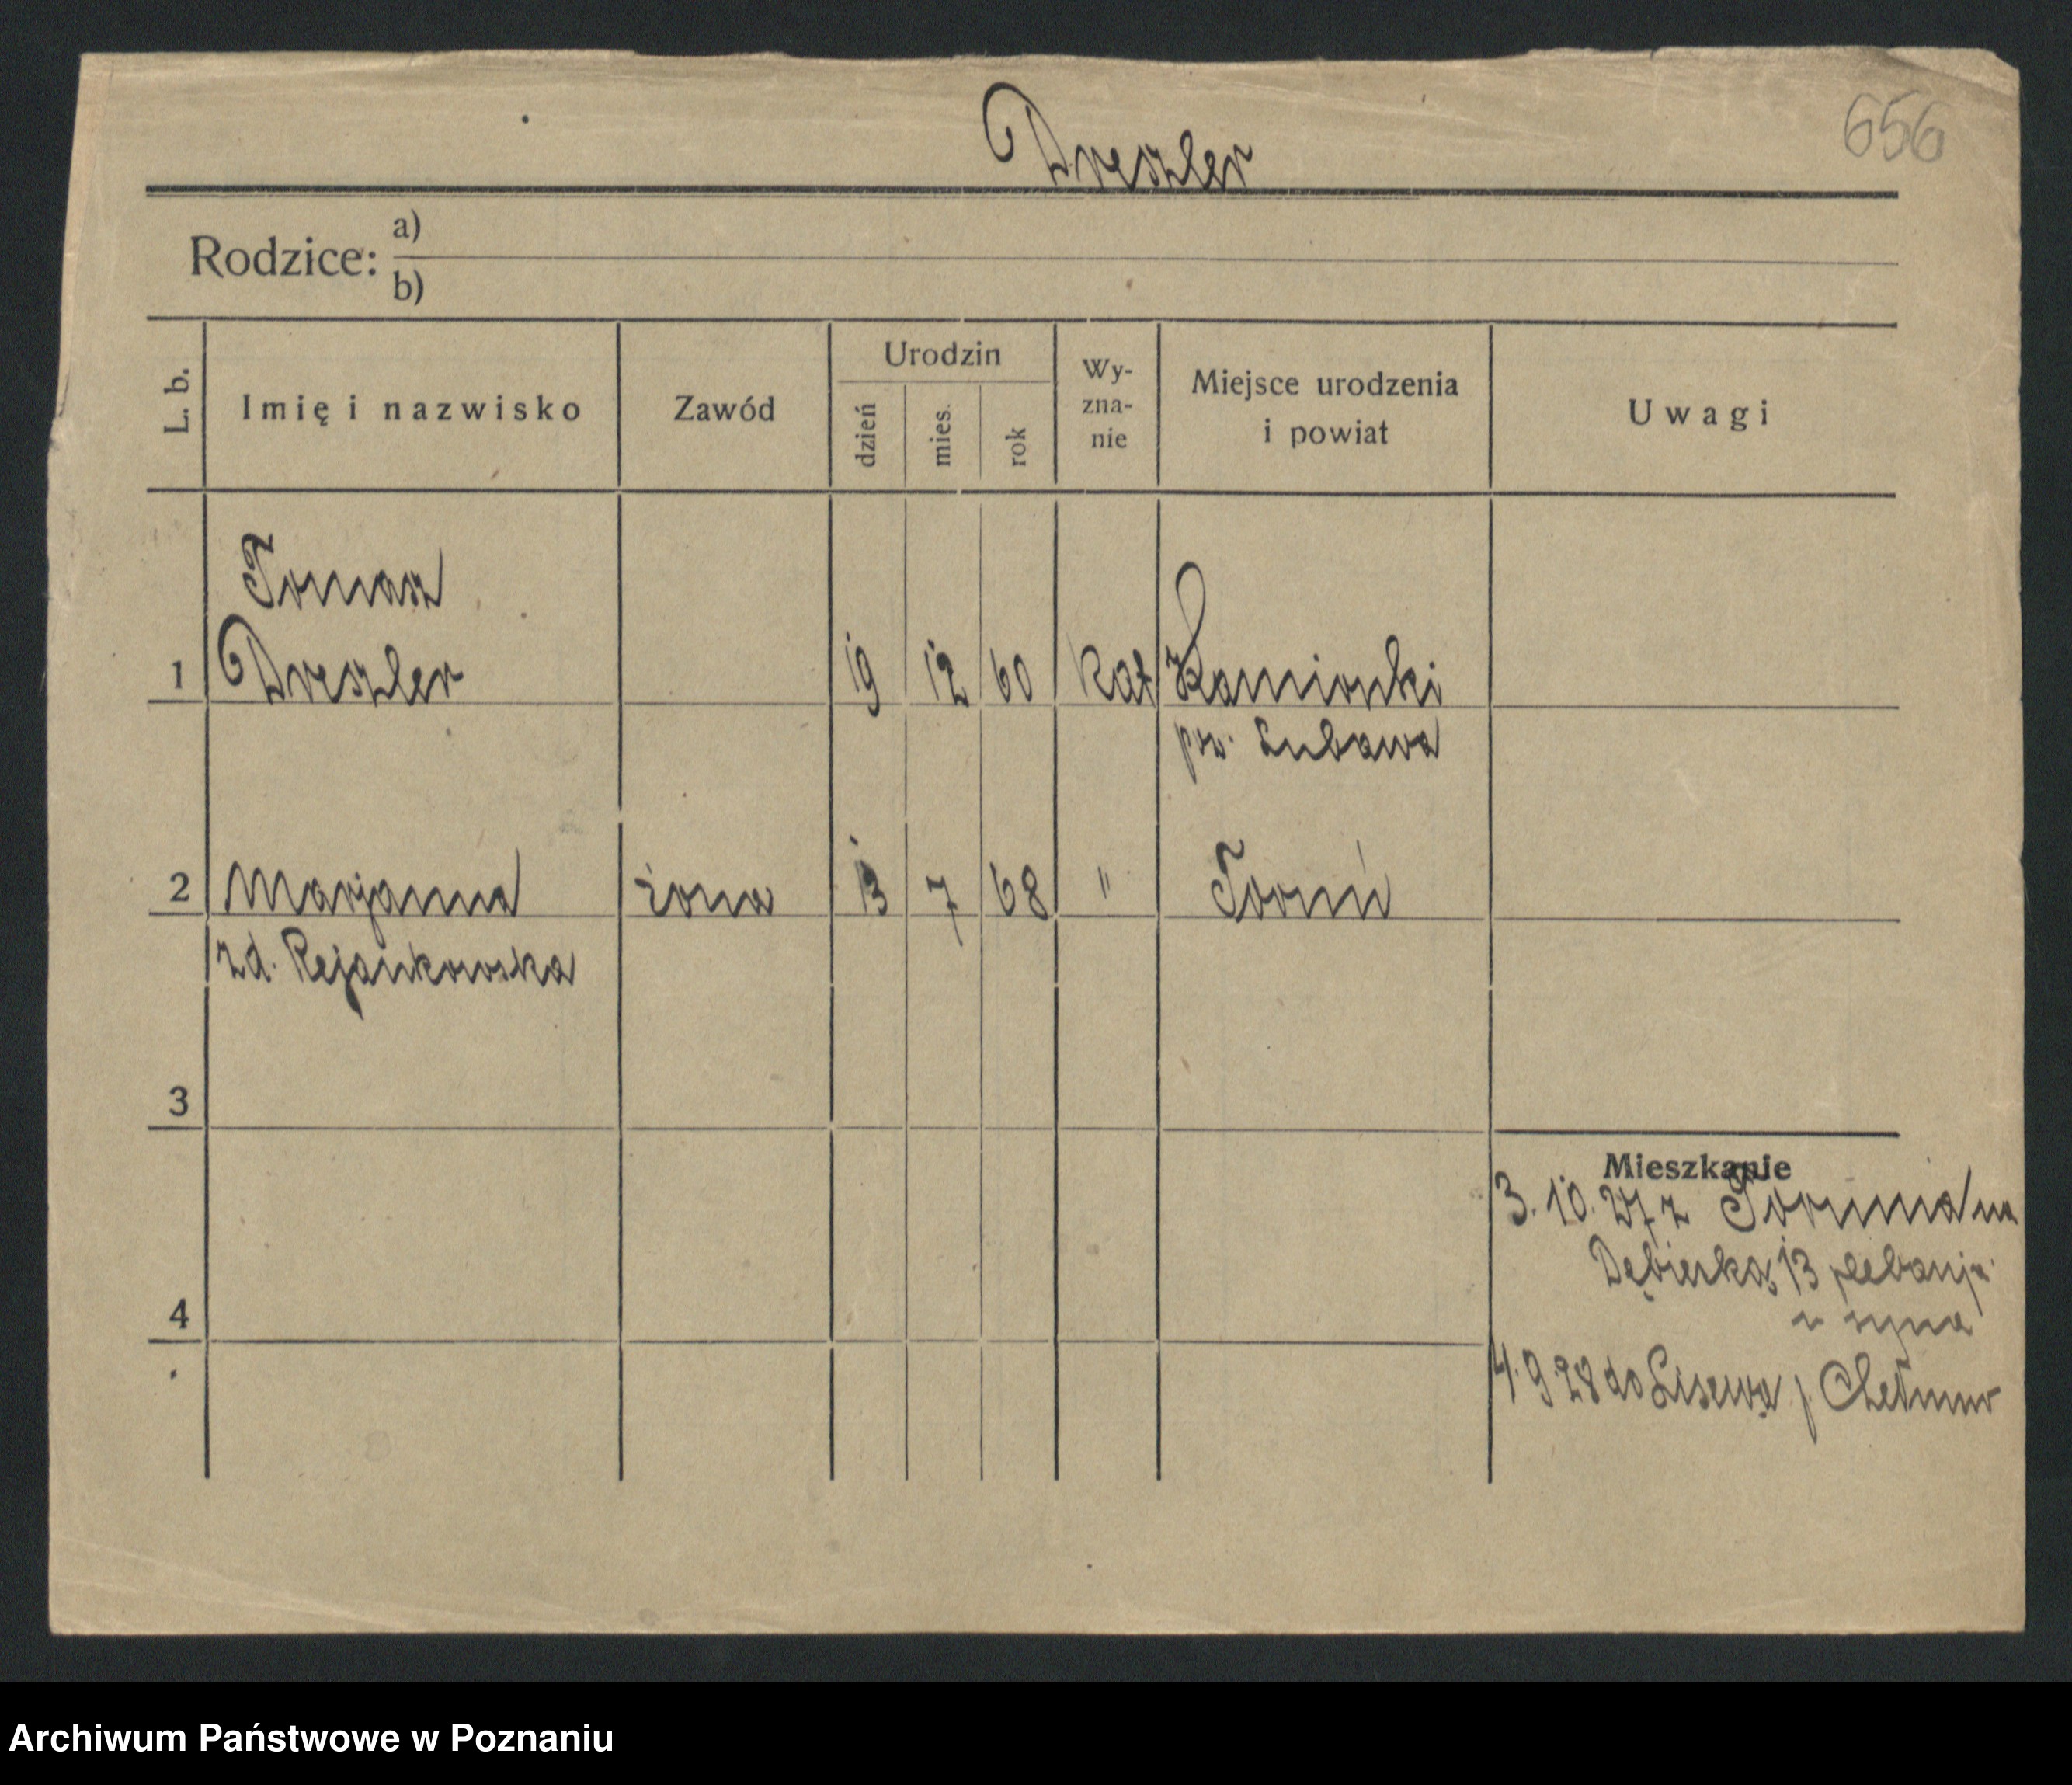 656
Dreszler
Rodzice: a)
b)
L. b. Imię i nazwisko Zawód Urodzin dzień mies. rok Wy-zna-nie Miejsce urodzenia i powiat Uwagi
Tomasz
1 Dreszler 19 12 60 kat Kamionki
pow. Lubawa
2 Marjanna żona 13 7 68 " Toruń
zd. Rejankowska
3
Mieszkanie
3. 10. 27 z Torunia na
Dębierska 13 plebanja
u syna
4
4. 9. 28 do Lisewa p. Chełmno
Archiwum Państwowe w Poznaniu